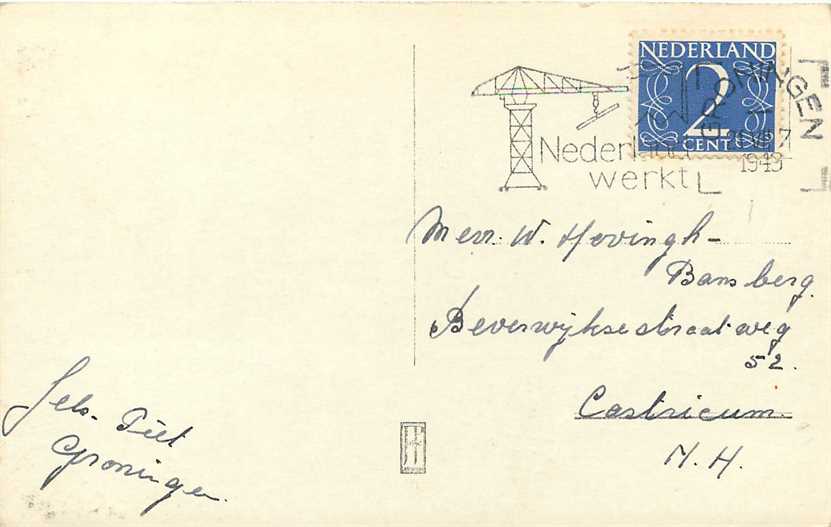 NEDERLAND
2
CENT
GRONINGEN
1949
Nederland
werkt
Mevr. W. Hovingh-
Bansberg.
Beverwijksestraatweg
52.
Castricum.
N.H.
Piet
Groningen.